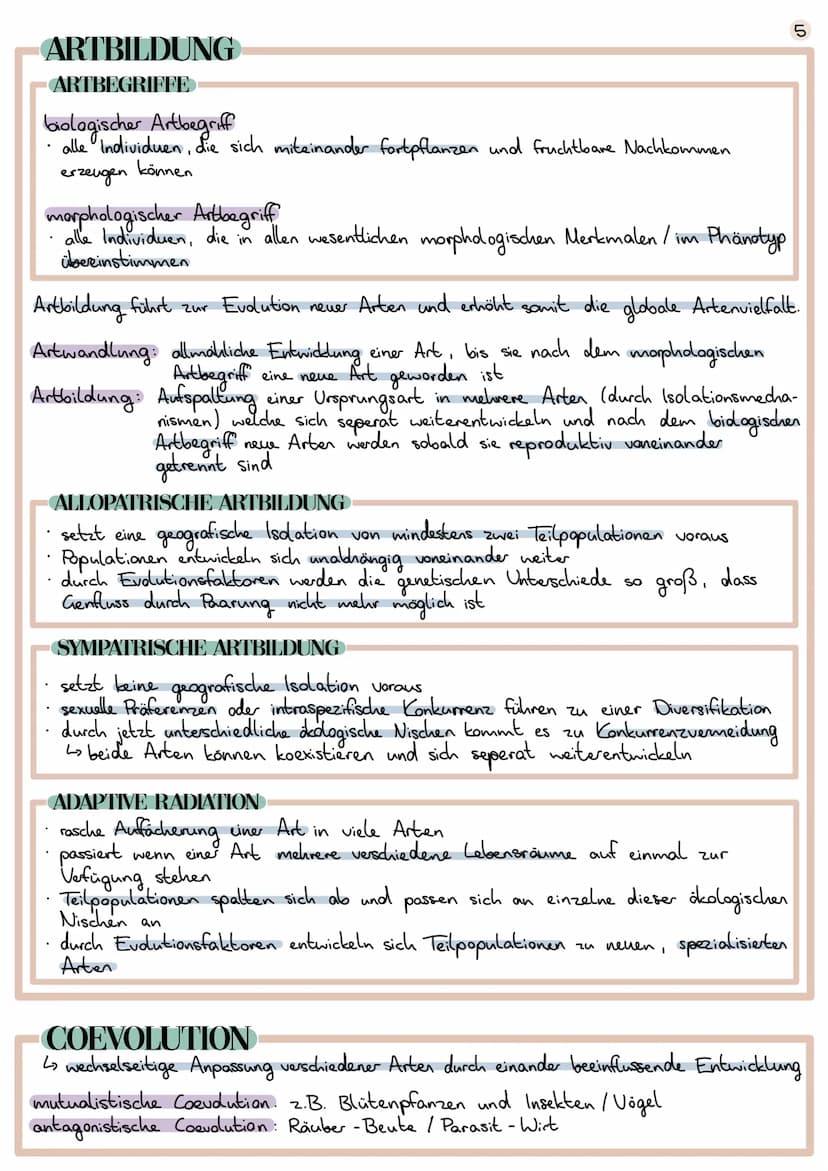 5
ARTBILDUNG
ARTBEGRIFFE
biologischer Artbegriff
· alle Individuen, die sich miteinander fortpflanzen und fruchtbare Nachkommen
erzeugen können
morphologischer Artbegriff
· alle Individuen, die in allen wesentlichen morphologischen Merkmalen / im Phänotyp
übereinstimmen
Artbildung führt zur Evolution neuer Arten und erhöht somit die globale Artenvielfalt.
Artwandlung: allmähliche Entwicklung einer Art, bis sie nach dem morphologischen
Artbegriff eine neue Art geworden ist
Artbildung: Aufspaltung einer Ursprungsart in mehrere Arten (durch Isolationsmecha-
nismen) welche sich seperat weiterentwickeln und nach dem biologischen
Artbegriff neue Arten werden sobald sie reproduktiv voneinander
getrennt sind
ALLOPATRISCHE ARTBILDUNG
· setzt eine geografische Isolation von mindestens zwei Teilpopulationen voraus
· Populationen entwickeln sich unabhängig voneinander weiter
· durch Evolutionsfaktoren werden die genetischen Unterschiede so groß, dass
Genfluss durch Paarung nicht mehr möglich ist
SYMPATRISCHE ARTBILDUNG
· setzt keine geografische Isolation voraus
· sexuelle Präferenzen oder intraspezifische Konkurrenz führen zu einer Diversifikation
· durch jetzt unterschiedliche ökologische Nischen kommt es zu Konkurrenzvermeidung
↳ beide Arten können koexistieren und sich seperat weiterentwickeln
ADAPTIVE RADIATION
· rasche Auffächerung einer Art in viele Arten
· passiert wenn einer Art mehrere verschiedene Lebensräume auf einmal zur
Verfügung stehen
· Teilpopulationen spalten sich ab und passen sich an einzelne dieser ökologischen
Nischen an
· durch Evolutionsfaktoren entwickeln sich Teilpopulationen zu neuen, spezialisierten
Arten
COEVOLUTION
↳ wechselseitige Anpassung verschiedener Arten durch einander beeinflussende Entwicklung
mutualistische Coevolution: z.B. Blütenpfanzen und Insekten / Vögel
antagonistische Coevolution: Räuber - Beute / Parasit - Wirt